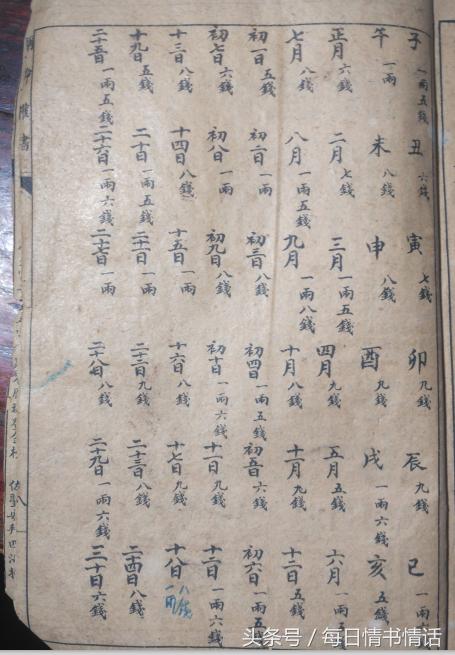 子 一兩五錢 丑 六錢 寅 七錢 卯 九錢 辰 九錢 巳 一兩
午 一兩 未 八錢 申 八錢 酉 九錢 戌 一兩六錢 亥 五錢
正月 六錢 二月 七錢 三月 一兩五錢 四月 九錢 五月 五錢 六月 一兩五
七月 八錢 八月 一兩五錢 九月 一兩八錢 十月 八錢 十一月 九錢 十二月 五錢
初一日 五錢 初二日 一兩 初三日 八錢 初四日 一兩五錢 初五日 六錢 初六日 一兩五
初七日 六錢 初八 一兩 初九日 八錢 初十日 一兩六錢 十一日 九錢 十二日 一兩六錢
十三日 八錢 十四日 八錢 十五日 一兩 十六日 八錢 十七日 九錢 十八日 一兩 八錢
十九日 五錢 二十日 一兩五錢 二十一日 一兩 二十二日 九錢 二十三日 八錢 二十四日 八錢
二十五日 一兩五錢 二十六日 一兩六錢 二十七日 一兩 二十八日 八錢 二十九日 一兩六錢 三十日 六錢
书
头条号 / 每日情书情话